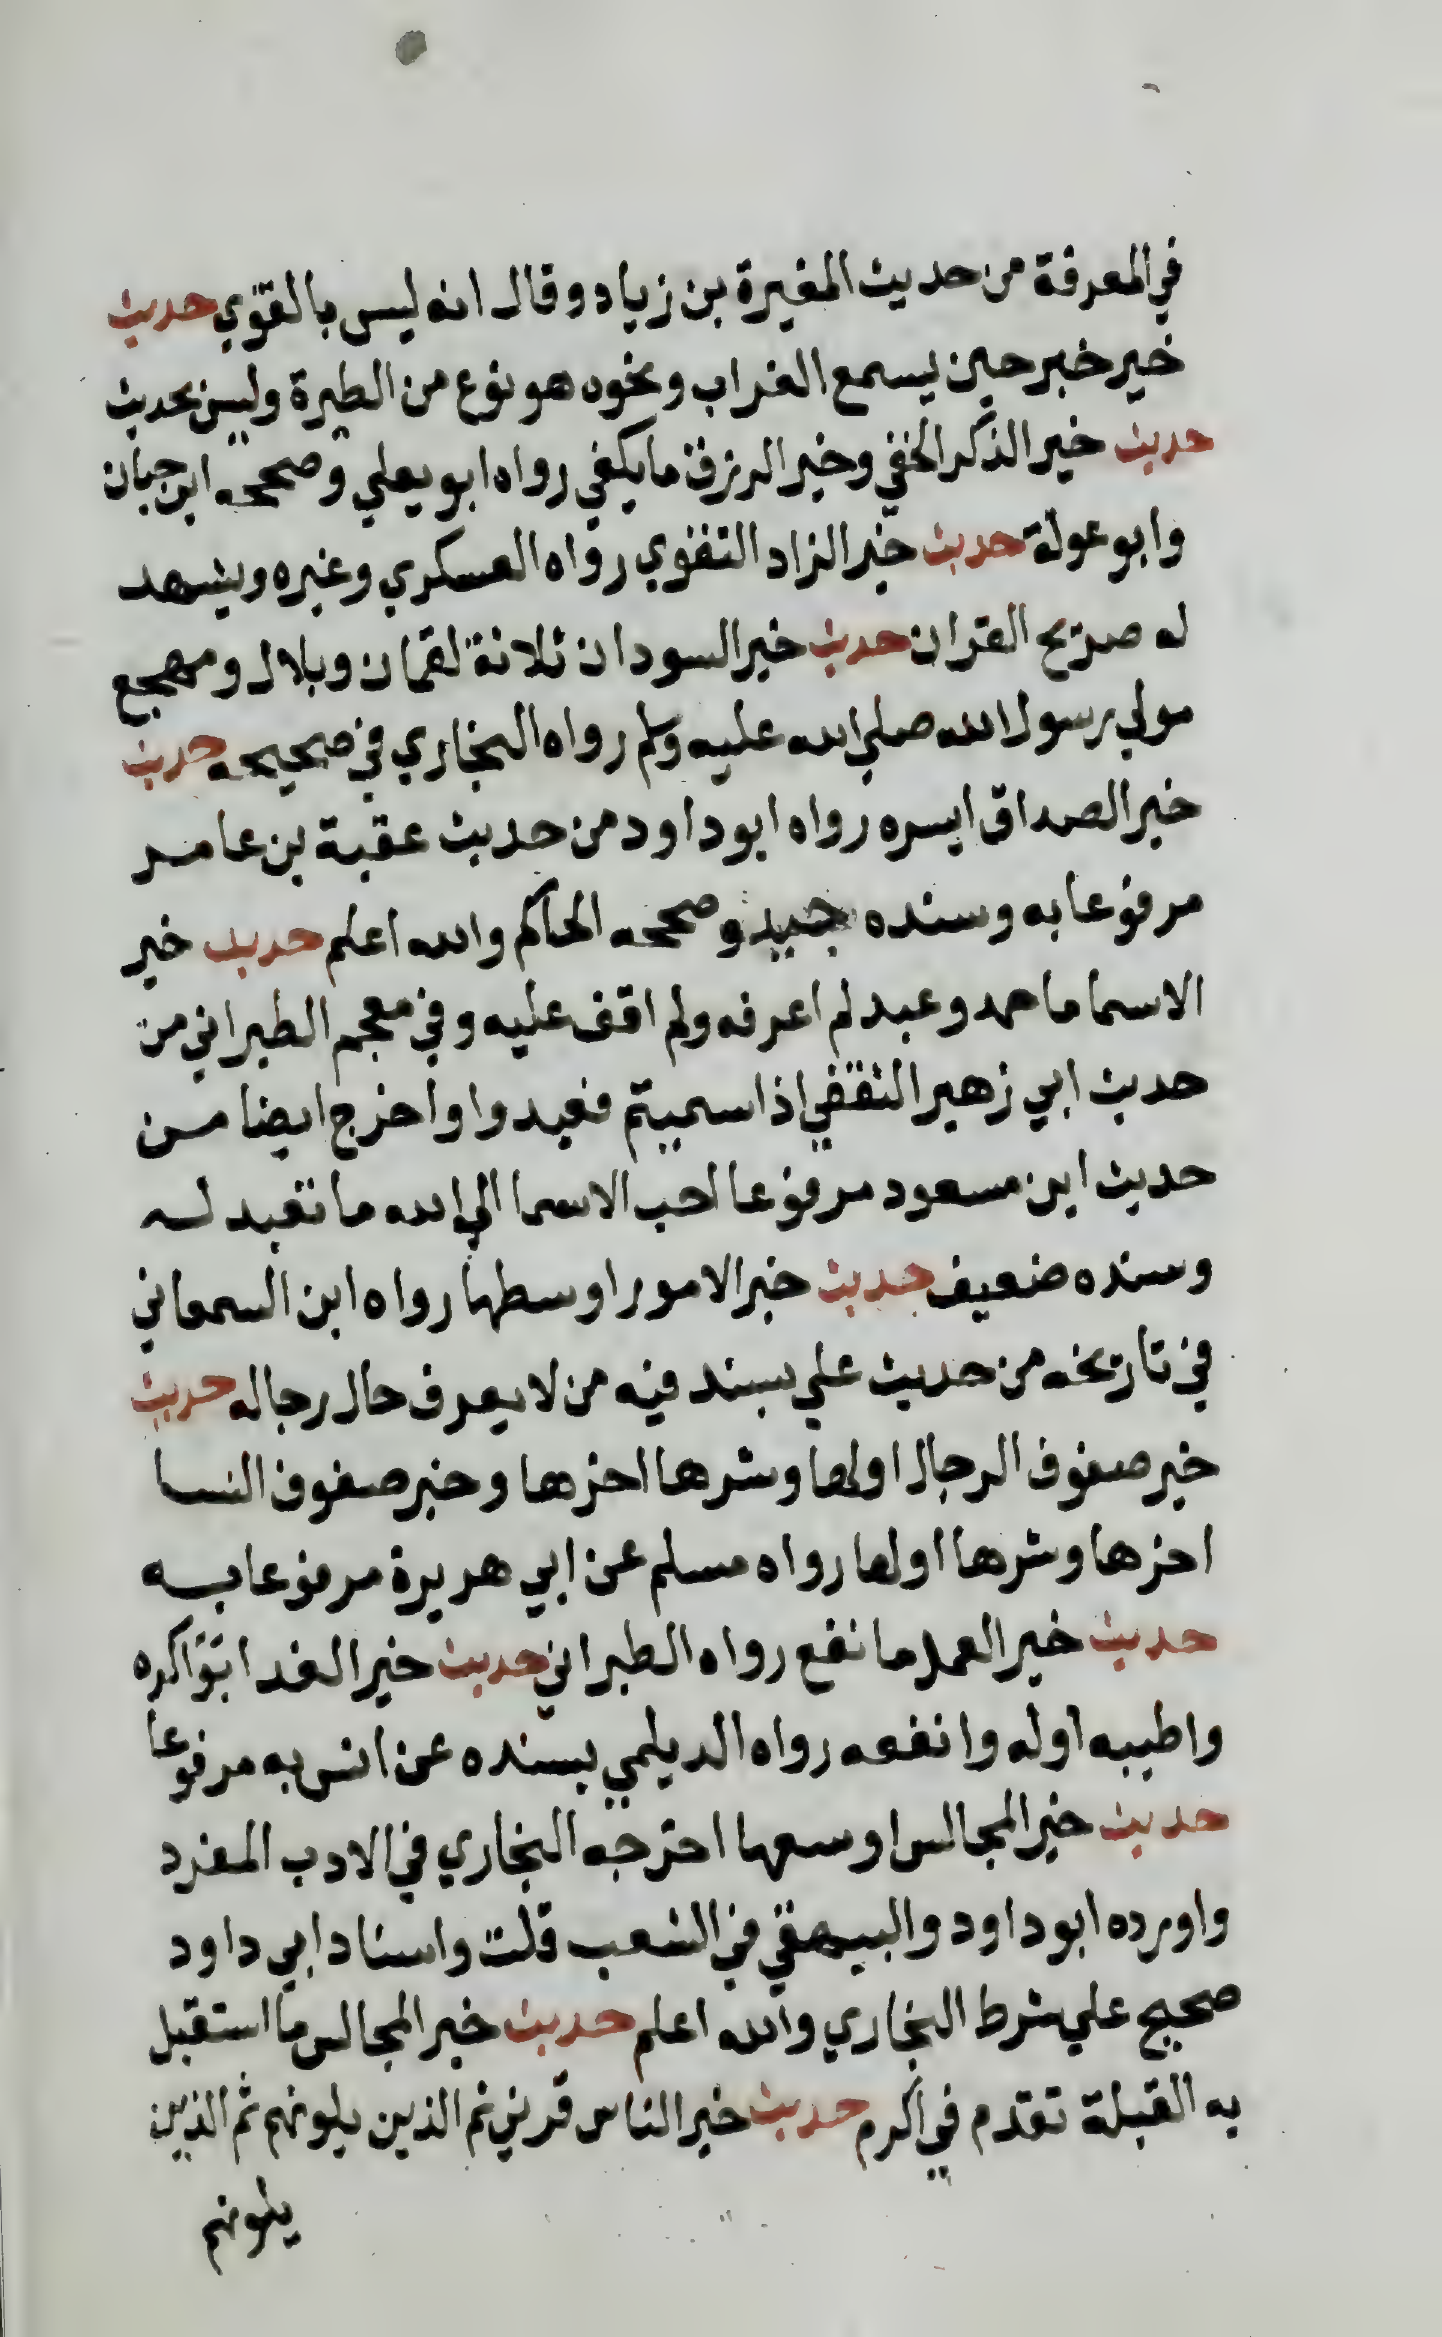 في المعرفة من حديث المغيرة بن زياد وقال انه ليس بالقوي حديث
خير خبر حين يسمع الغراب ونحوه هو نوع من الطيرة وليس بحديث
حديث خير الذكر الخفي وخير الرزق ما يكفي رواه ابو يعلي وصححه ابن حبان
وابو عوانة حديث خير الزاد التقوي رواه العسكري وغيره ويشهد
له صريح القران حديث خير السودان ثلاثة لقمان وبلال ومهجع
مولي رسول الله صلي الله عليه وسلم رواه البخاري في صحيحه حديث
خير الصداق ايسره رواه ابو داود من حديث عقبة بن عامر
مرفوعا به وسنده جيد وصححه الحاكم والله اعلم حديث خير
الاسما ما حمد وعبد لم اعرفه ولم اقف عليه وفي معجم الطبراني من
حديث ابي زهير الثقفي اذا سميتم فعبدوا واخرج ايضا من
حديث ابن مسعود مرفوعا احب الاسما الي الله ما تعبد له
وسنده ضعيف حديث خير الامور اوسطها رواه ابن السمعاني
في تاريخه من حديث علي بسند فيه من لا يعرف حال رجاله حديث
خير صفوف الرجال اولها وشرها اخرها وخير صفوف النسا
اخرها وشرها اولها رواه مسلم عن ابي هريرة مرفوعا به
حديث خير العمل ما نفع رواه الطبراني حديث خير الغدا بواكره
واطيبه اوله وانفعه رواه الديلمي بسنده عن انس به مرفوعا
حديث خير المجالس اوسعها اخرجه البخاري في الادب المفرد
واورده ابو داود والبيهقي في الشعب قلت واسناد ابي داود
صحيح علي شرط البخاري والله اعلم حديث خير المجالس ما استقبل
به القبلة تقدم في اكرم حديث خير الناس قرني ثم الذين يلونهم ثم الذين
يلونهم